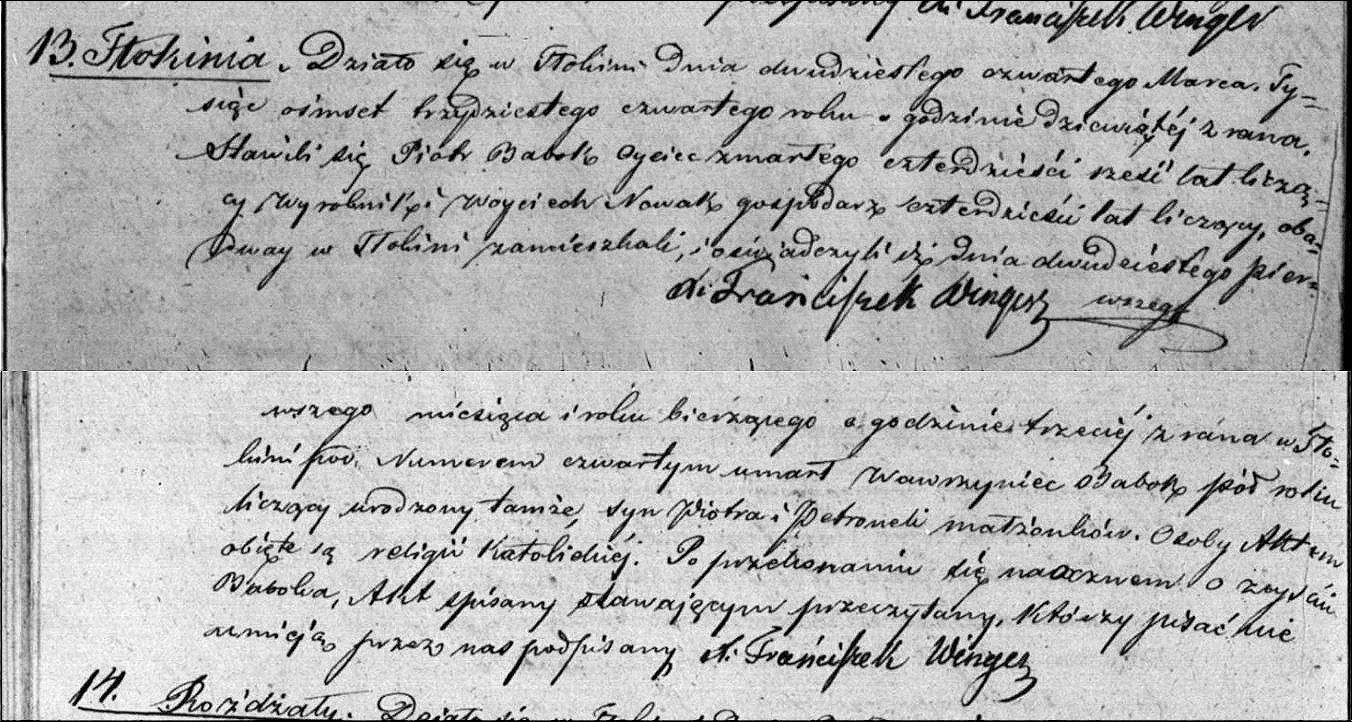 podpisany X. Franciszek Winger
13. Tłokinia. Działo się w Tłokini Dnia dwudziestego czwartego Marca. Ty=
siąc ośmset trzydziestego czwartego roku o godzinie dziewiątéj z rana.
Stawili się Piotr Babok Oyciec zmarłego czterdzieści sześć lat liczą=
cy Wyrobnik, i Woyciech Nowak gospodarz czterdzieści lat liczący, oba=
dway w Tłokini zamieszkali, i oświadczyli iż dnia dwudziestego pier=
X. Franciszek Winger wszego
wszego miesiąca i roku bierzącego o godzinie trzeciéj z rana w Tło=
kini pod Numerem czwartym umarł Wawrzyniec Babok pół roku
liczący urodzony tamże, syn Piotra i Petroneli małżonków. Osoby Aktem
obięte są religii Katolickiéj. Po przekonaniu się naocznem o zeyściu
Baboka, Akt spisany stawającym przeczytany, którzy pisać nie
umieją przez nas podpisany X. Franciszek Winger
14. Rożdżały. Działo się w